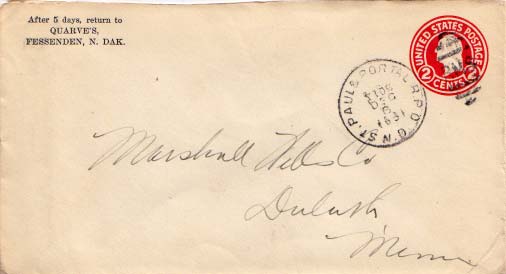 After 5 days, return to
QUARVE'S,
FESSENDEN, N. DAK.
UNITED STATES POSTAGE
2 CENTS 2
ST. PAUL & PORTAL R.P.O.
DEC
6
1931
N.D.
Marshall Wells Co
Duluth
Minn